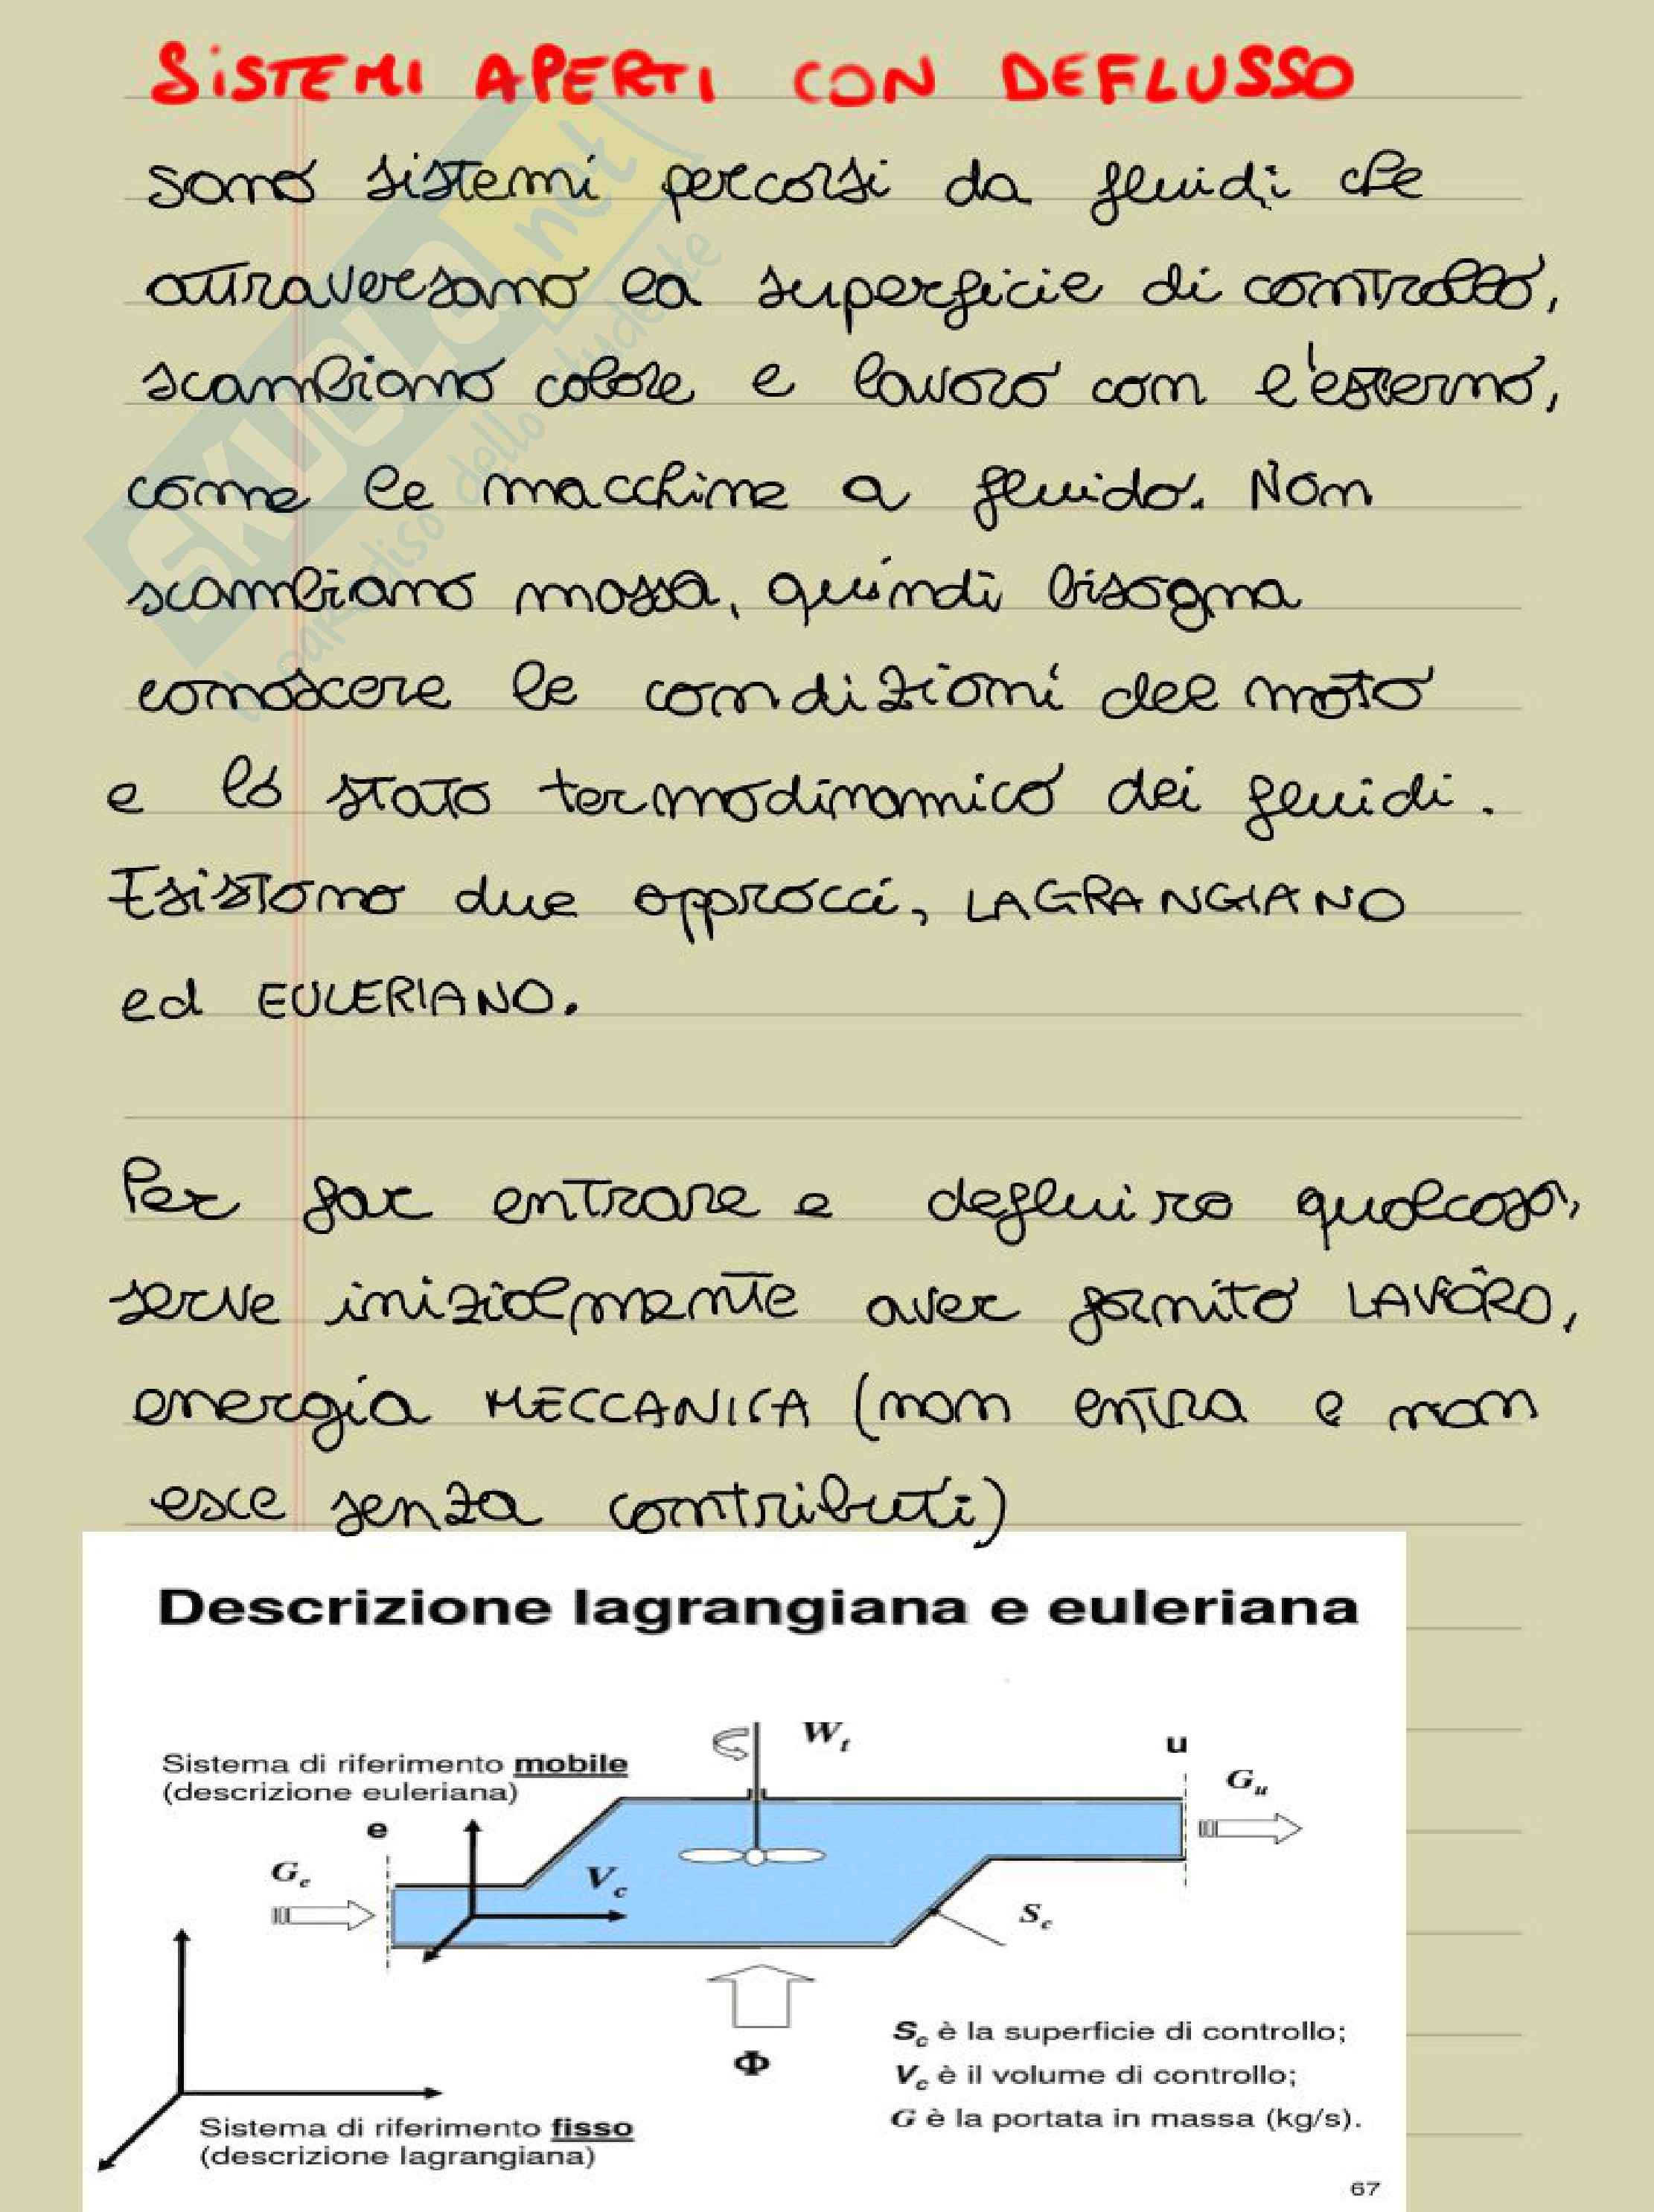 SISTEMI APERTI CON DEFLUSSO
sono sistemi percorsi da fluidi che
attraversano la superficie di controllo,
scambiano calore e lavoro con l'esterno,
come le macchine a fluido. Non
scambiano massa, quindi bisogna
conoscere le condizioni del moto
e lo stato termodinamico dei fluidi.
Esistono due approcci, LAGRANGIANO
ed EULERIANO.
Per far entrare e defluire qualcosa,
serve inizialmente aver fornito LAVORO,
energia MECCANICA (non entra e non
esce senza contributi)
Descrizione lagrangiana e euleriana
Sistema di riferimento mobile
(descrizione euleriana)
W_t
u
G_u
e
G_e
V_c
S_c
Φ
S_c è la superficie di controllo;
V_c è il volume di controllo;
G è la portata in massa (kg/s).
Sistema di riferimento fisso
(descrizione lagrangiana)
67
SKUOLA.net
il paradiso dello studente